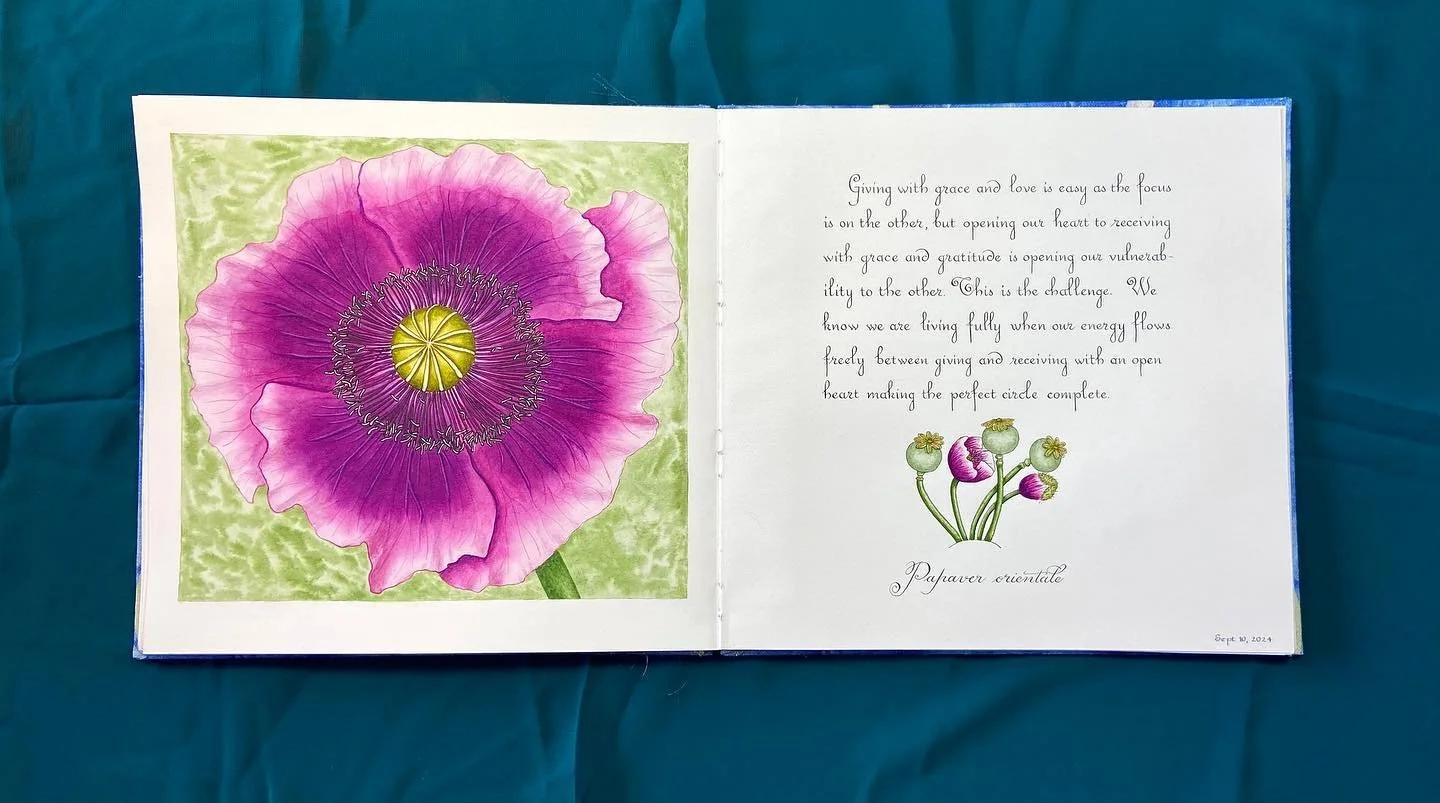 Giving with grace and love is easy as the focus
is on the other, but opening our heart to receiving
with grace and gratitude is opening our vulnerab-
ility to the other. This is the challenge. We
know we are living fully when our energy flows
freely between giving and receiving with an open
heart making the perfect circle complete.
Papaver orientale
Sept 10, 2024